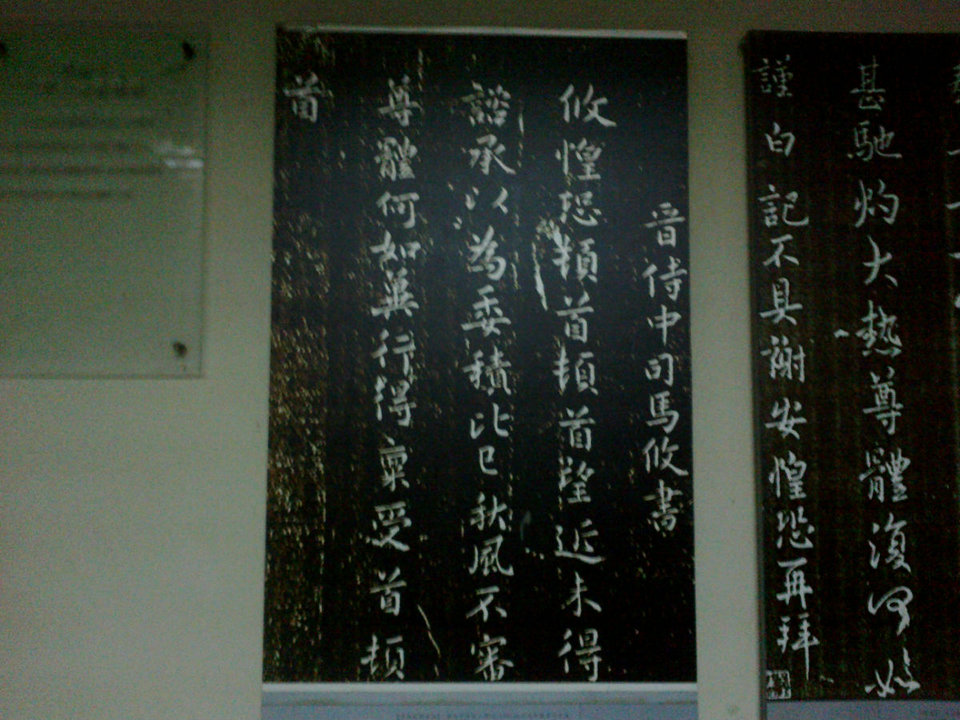 甚馳灼大熱尊體復何如
謹白記不具謝安惶恐再拜
晋侍中司馬攸書
攸惶恐頓首頓首望近未得
諮承以為委積比已秋風不審
尊體何如冀行得稟受首頓
首